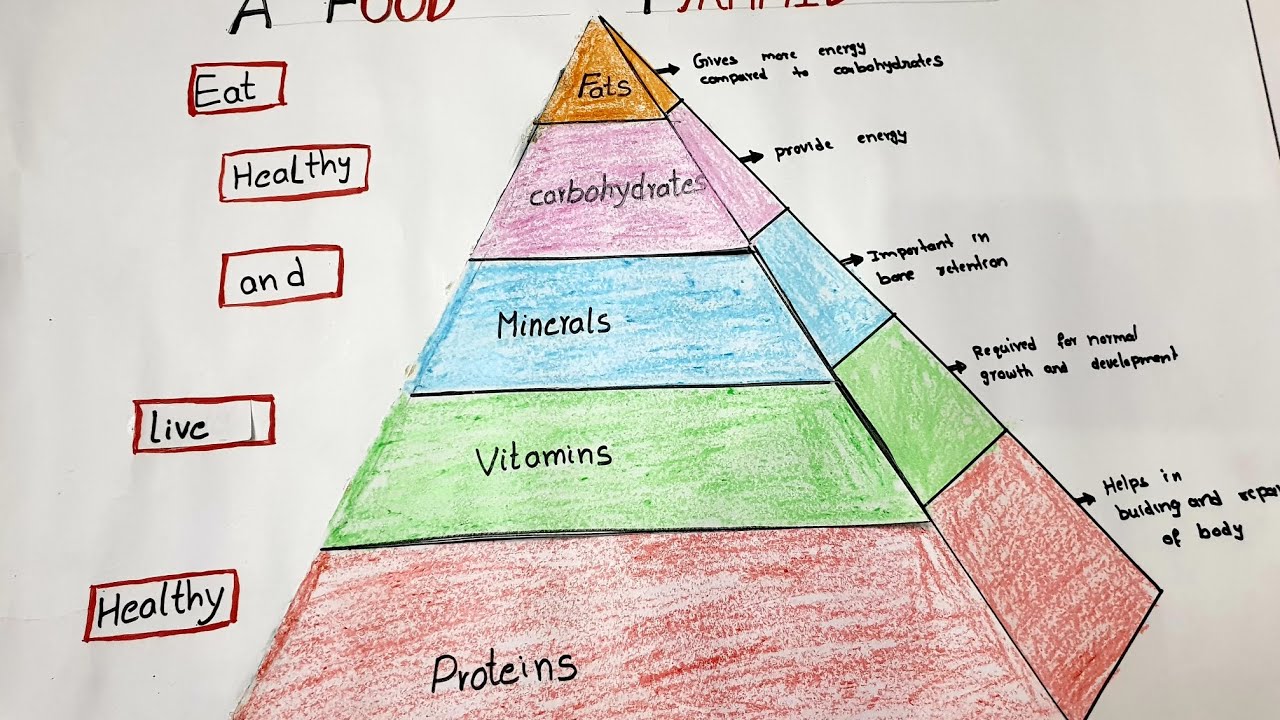 A FOOD PYRAMID
Eat
Healthy
and
live
Healthy
Fats
carbohydrates
Minerals
Vitamins
Proteins
Gives more energy
compared to carbohydrates
provide energy
Important in
bone retention
Required for normal
growth and development
Helps in
buiding and repai
of body